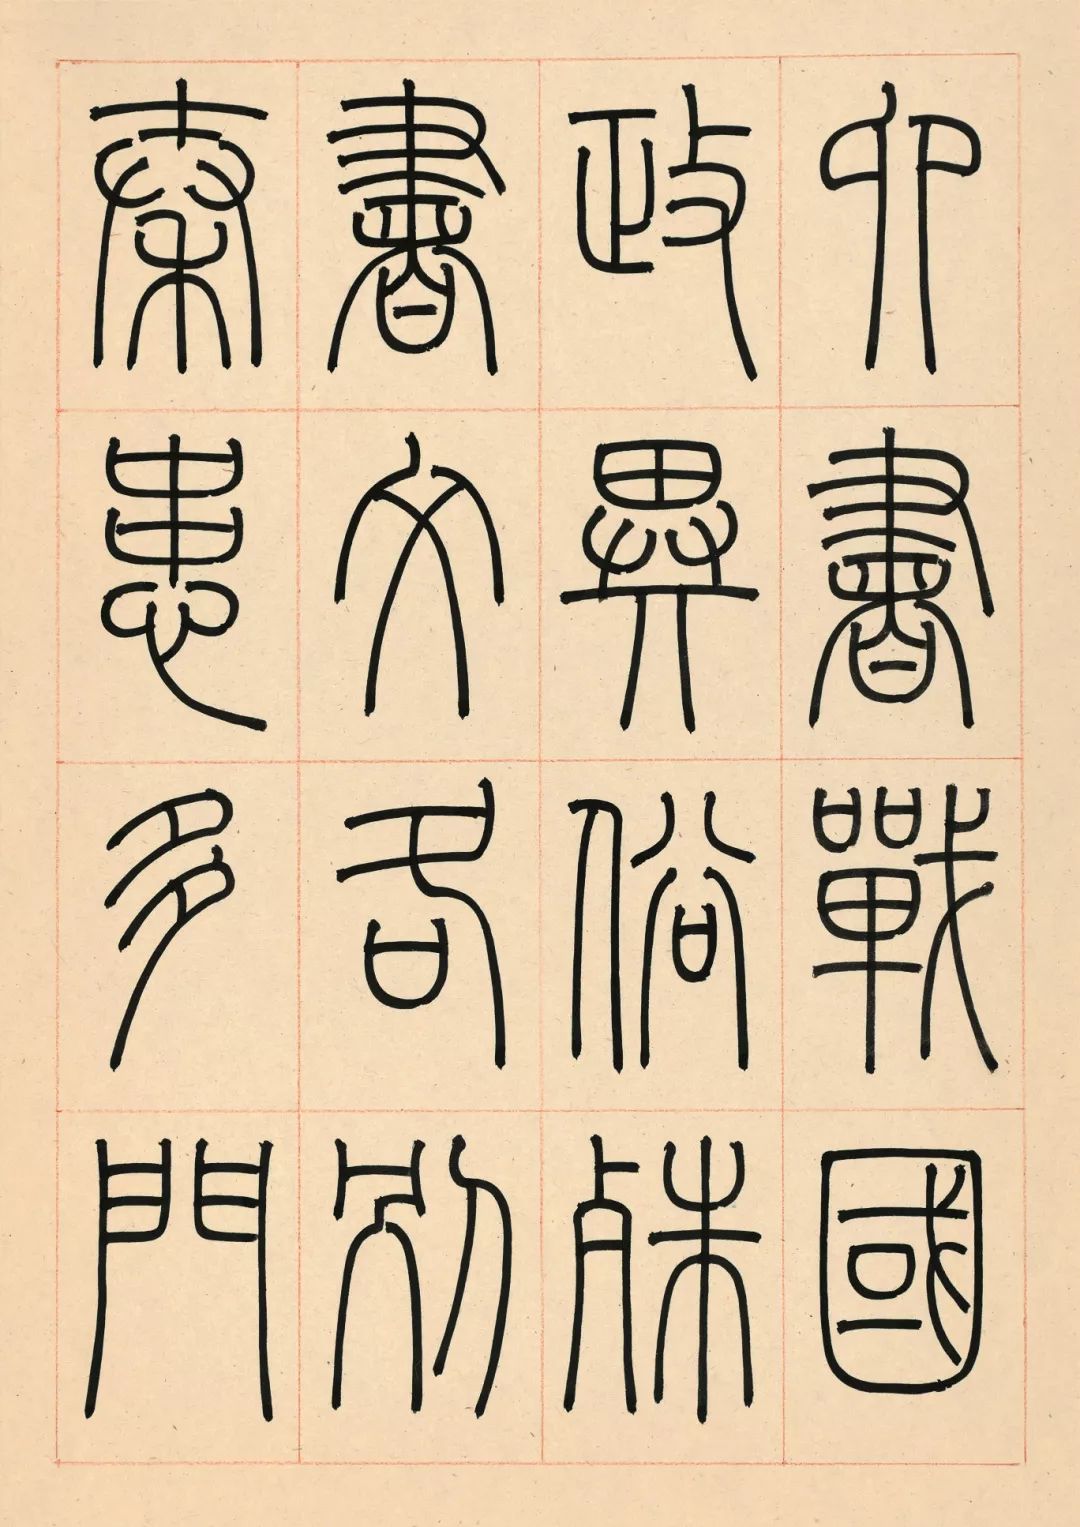 卯書戰國
政異俗殊
書文各別
秦患多門